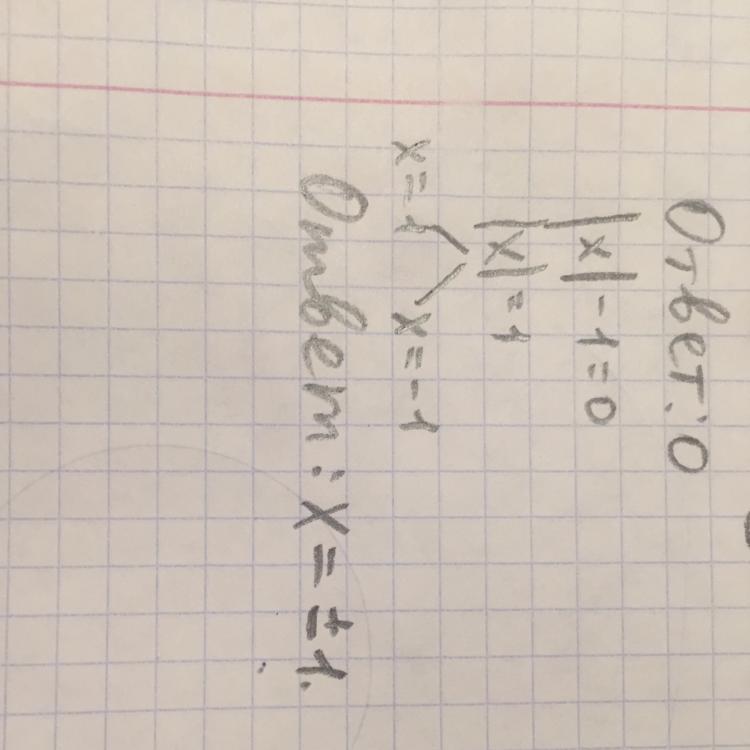 Ответ: 0
|x| - 1 = 0
|x| = 1
x = 1 x = -1
Ответ: x = ±1.